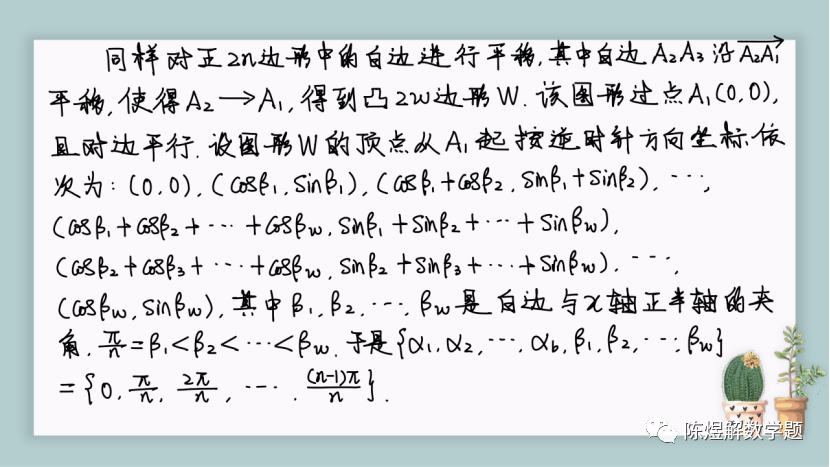 同样对正2n边形中的白边进行平移,其中白边A₂A₃沿$\overrightarrow{A_2A_1}$
平移,使得A₂→A₁,得到凸2w边形W.该图形过点A₁(0,0),
且对边平行.设图形W的顶点从A₁起按逆时针方向坐标依
次为:(0,0),(cosβ₁,sinβ₁),(cosβ₁+cosβ₂,sinβ₁+sinβ₂),⋯,
(cosβ₁+cosβ₂+⋯+cosβw,sinβ₁+sinβ₂+⋯+sinβw),
(cosβ₂+cosβ₃+⋯+cosβw,sinβ₂+sinβ₃+⋯+sinβw),⋯,
(cosβw,sinβw),其中β₁,β₂,⋯,βw是白边与x轴正半轴的夹
角,$\frac{π}{n}$=β₁<β₂<⋯<βw.于是{α₁,α₂,⋯,αb,β₁,β₂,⋯,βw}
={0,$\frac{π}{n}$,$\frac{2π}{n}$,⋯,$\frac{(n-1)π}{n}$}.
陈煜解数学题